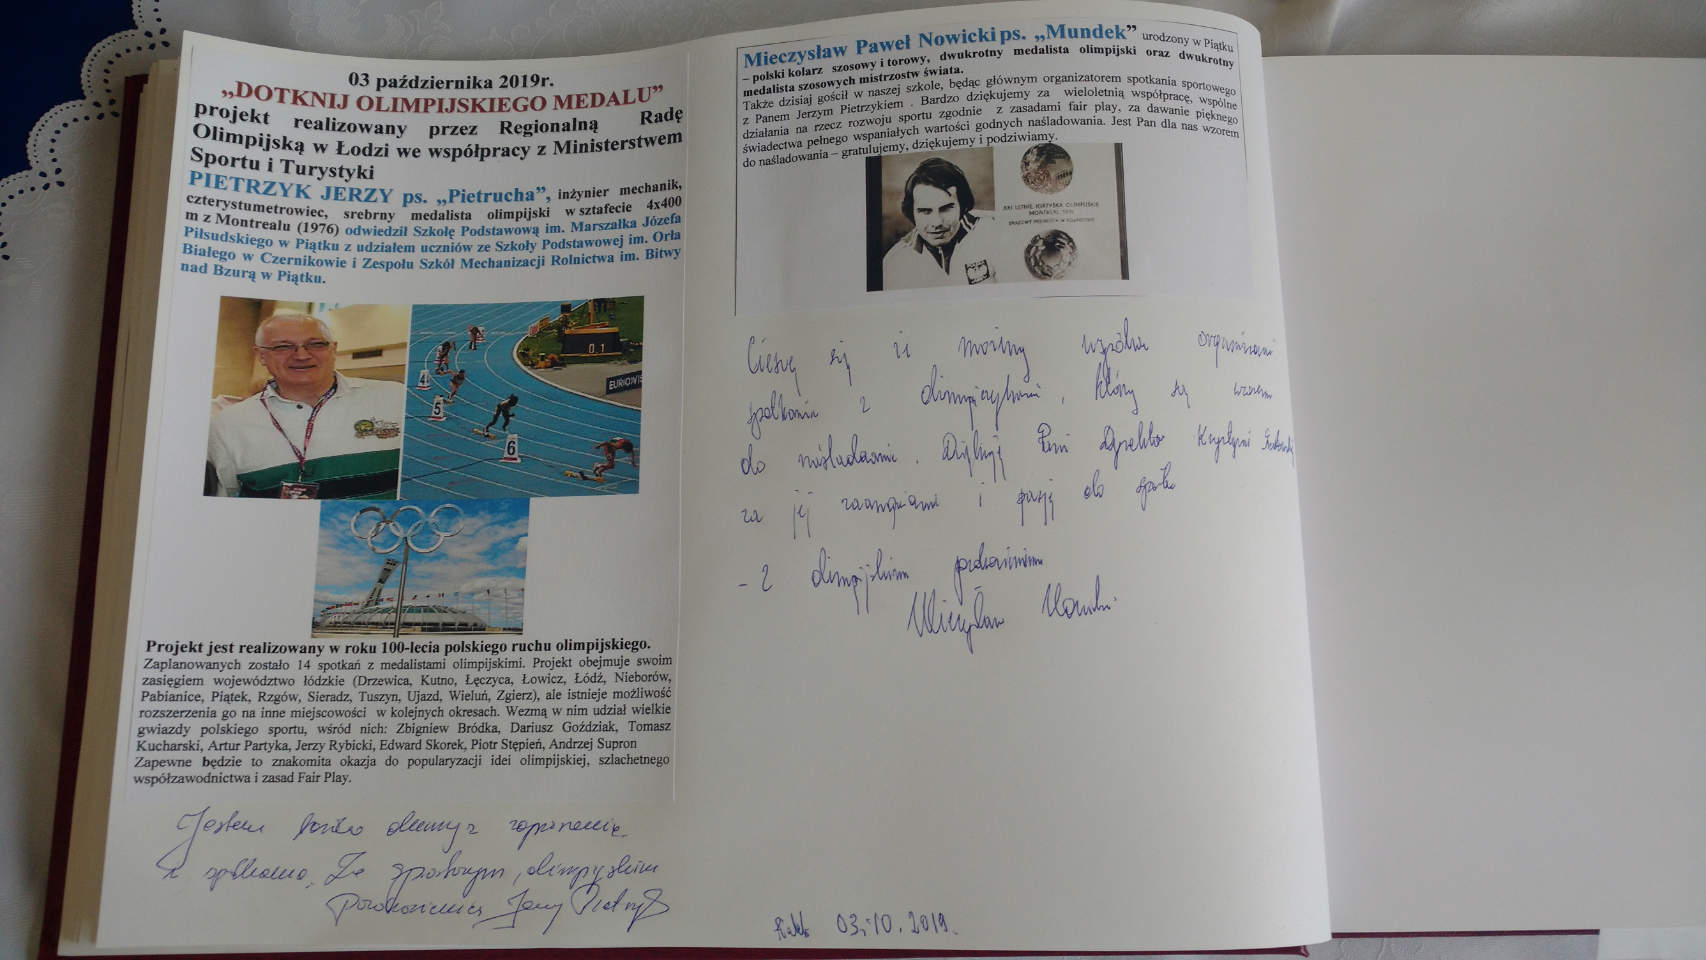 03 października 2019r.
„DOTKNIJ OLIMPIJSKIEGO MEDALU”
projekt realizowany przez Regionalną Radę
Olimpijską w Łodzi we współpracy z Ministerstwem
Sportu i Turystyki
PIETRZYK JERZY ps. „Pietrucha”, inżynier mechanik,
czterystumetrowiec, srebrny medalista olimpijski w sztafecie 4x400
m z Montrealu (1976) odwiedził Szkołę Podstawową im. Marszałka Józefa
Piłsudskiego w Piątku z udziałem uczniów ze Szkoły Podstawowej im. Orła
Białego w Czernikowie i Zespołu Szkół Mechanizacji Rolnictwa im. Bitwy
nad Bzurą w Piątku.
4
5
6
0.1
Projekt jest realizowany w roku 100-lecia polskiego ruchu olimpijskiego.
Zaplanowanych zostało 14 spotkań z medalistami olimpijskimi. Projekt obejmuje swoim
zasięgiem województwo łódzkie (Drzewica, Kutno, Łęczyca, Łowicz, Łódź, Nieborów,
Pabianice, Piątek, Rzgów, Sieradz, Tuszyn, Ujazd, Wieluń, Zgierz), ale istnieje możliwość
rozszerzenia go na inne miejscowości w kolejnych okresach. Wezmą w nim udział wielkie
gwiazdy polskiego sportu, wśród nich: Zbigniew Bródka, Dariusz Goździak, Tomasz
Kucharski, Artur Partyka, Jerzy Rybicki, Edward Skorek, Piotr Stępień, Andrzej Supron
Zapewne będzie to znakomita okazja do popularyzacji idei olimpijskiej, szlachetnego
współzawodnictwa i zasad Fair Play.
Jestem bardzo dumny z zaproszenia
spotkanie. Ze sportowym, olimpijskim
Pozdrowieniem Jerzy Pietrzyk
Mieczysław Paweł Nowicki ps. „Mundek” urodzony w Piątku
– polski kolarz szosowy i torowy, dwukrotny medalista olimpijski oraz dwukrotny
medalista szosowych mistrzostw świata.
Także dzisiaj gościł w naszej szkole, będąc głównym organizatorem spotkania sportowego
z Panem Jerzym Pietrzykiem . Bardzo dziękujemy za wieloletnią współpracę, wspólne
działania na rzecz rozwoju sportu zgodnie z zasadami fair play, za dawanie pięknego
świadectwa pełnego wspaniałych wartości godnych naśladowania. Jest Pan dla nas wzorem
do naśladowania – gratulujemy, dziękujemy i podziwiamy.
XXI LETNIE IGRZYSKA OLIMPIJSKIE
MONTREAL 1976
Cieszę się iż możemy wspólnie organizować
spotkania z olimpijczykami, którzy są wzorem
do naśladowania. Dziękuję Pani Dyrektor Krystynie
za jej zaangażowanie i pasję do sportu
- Z olimpijskim pozdrowieniem
Mieczysław Nowicki
Piątek 03.10.2019.